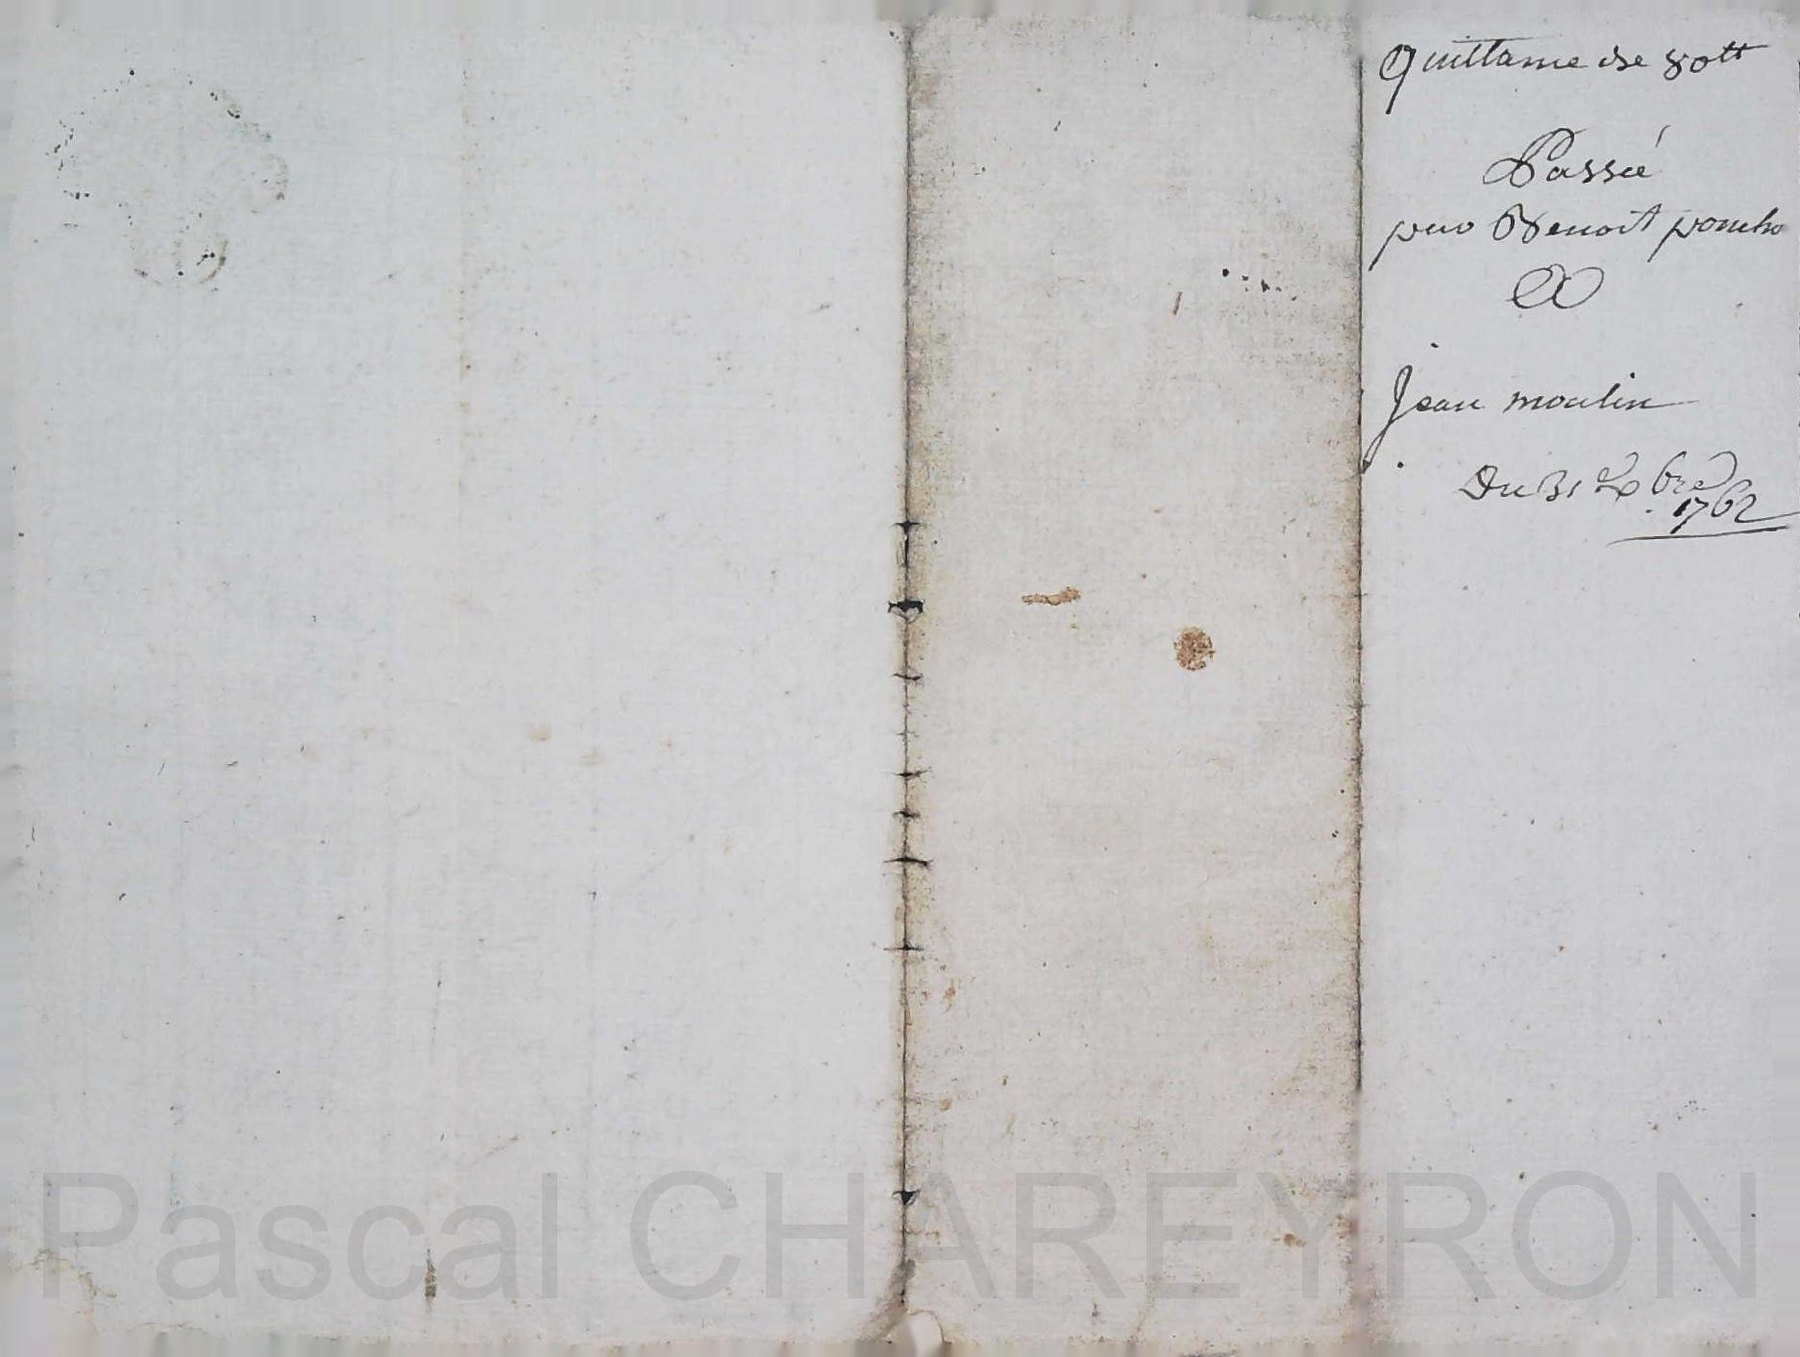 Quittance de 80tt
Passée
par Benoit poncho
A
Jean moulin
Du 31 Xbre
1762
Pascal CHAREYRON